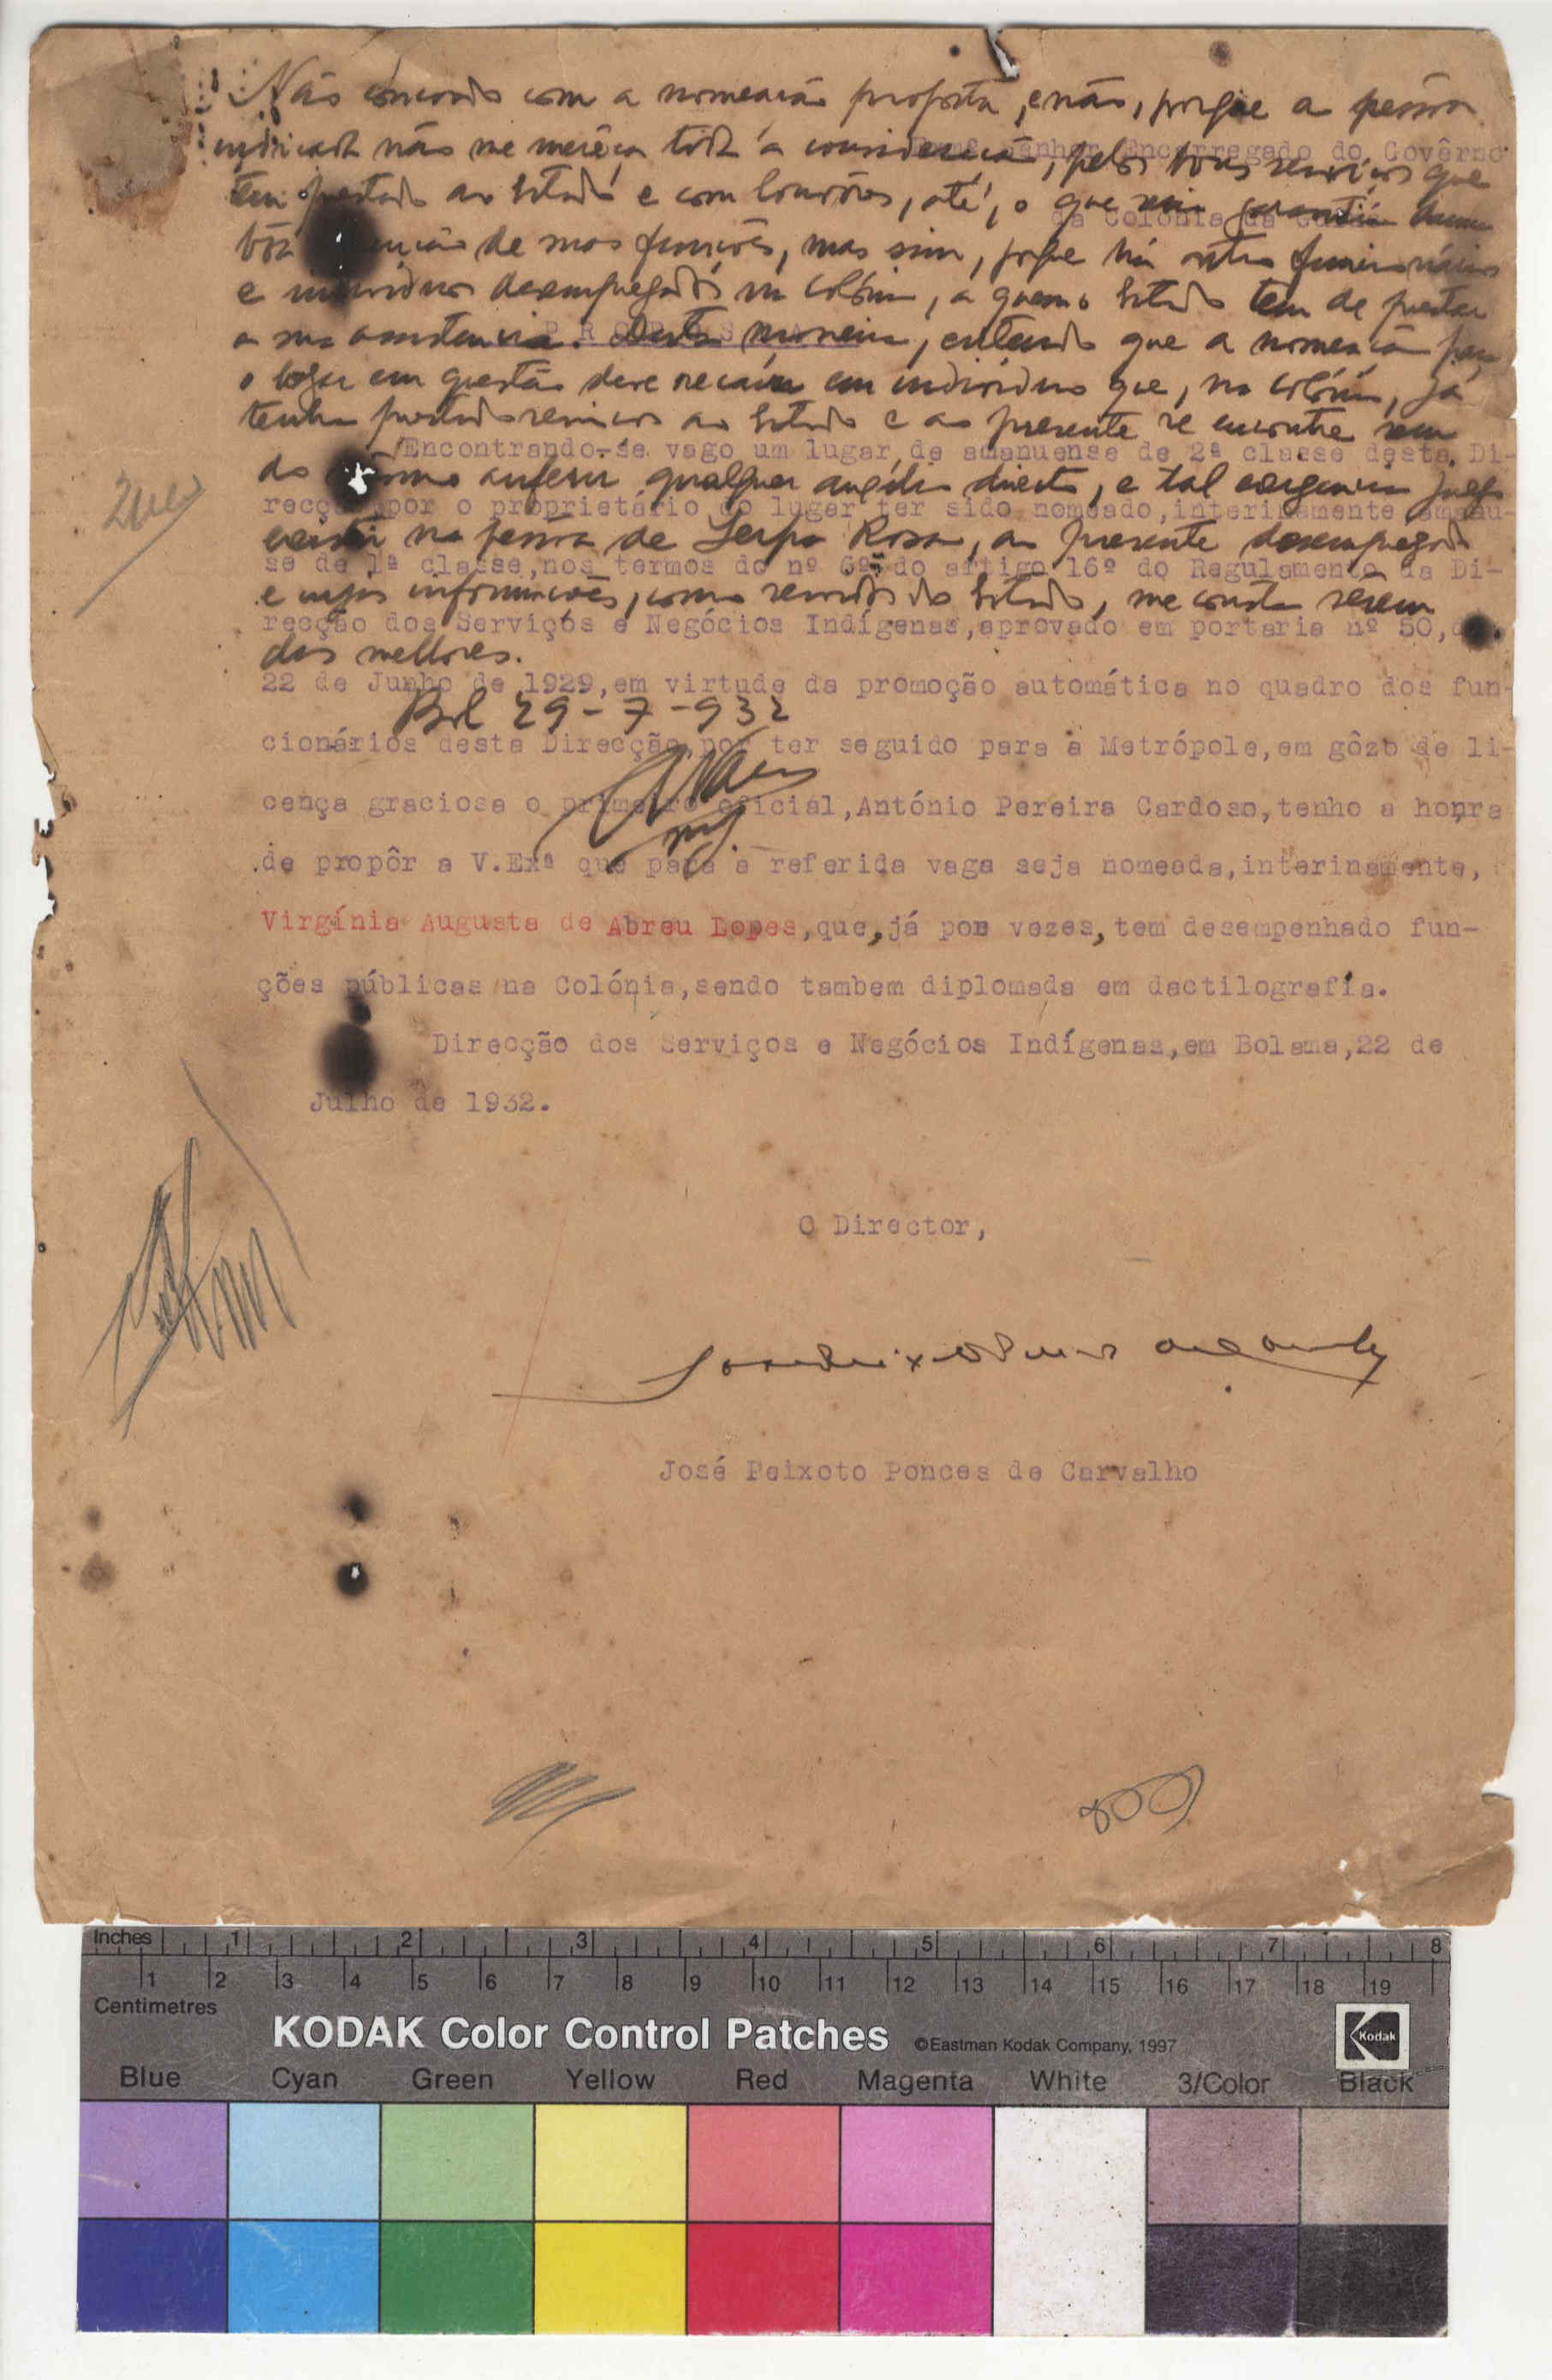 Não concordo com a nomeação proposta, e não, porque a pessoa
indicada não me mereça toda a consideração, pelos bons serviços que
tem prestado ao Estado e com louvores, até, o que garantia duma
bôa de suas funções, mas sim, porque há outros funcionários
e individuos desempregados na colónia, a quem o Estado tem de prestar
a sua assistencia. Desta maneira, entendo que a nomeação para
o logar em questão deve recair em individuos que, na colónia, já
tenha prestado serviços ao Estado e ao presente se encontre sem
do mesmo auferir qualquer auxilio directo, e tal exigencia julgo
existir na pessôa de Serpa Rosa, ao presente desempregado
e cujas informações, como servidor do Estado, me consta serem
das melhores.
Bol 29-7-932
Senhor Encarregado do Govêrno
da Colónia da Guiné
PROPOSTA
Encontrando-se vago um lugar de amanuense de 2ª classe desta Di-
recção por o proprietário do lugar ter sido nomeado, interinamente amanu-
se de 1ª classe, nos termos do nº 6º do artigo 16º do Regulamento da Di-
recção dos Serviços e Negócios Indígenas, aprovado em portaria nº 50,
22 de Junho de 1929, em virtude da promoção automática no quadro dos fun-
cionários desta Direcção por ter seguido para a Metrópole, em gôzo de li-
cença graciosa o primeiro oficial, António Pereira Cardoso, tenho a honra
de propôr a V.Exª que para a referida vaga seja nomeada, interinamente,
Virgínia Augusta de Abreu Lopes, que, já por vezes, tem desempenhado fun-
ções públicas na Colónia, sendo tambem diplomada em dactilografia.
Direcção dos Serviços e Negócios Indígenas, em Bolama, 22 de
Julho de 1932.
O Director,
José Peixoto Ponces de Carvalho
Inches 1 2 3 4 5 6 7 8
1 2 3 4 5 6 7 8 9 10 11 12 13 14 15 16 17 18 19
Centimetres
KODAK Color Control Patches ©Eastman Kodak Company, 1997 Kodak
Blue Cyan Green Yellow Red Magenta White 3/Color Black